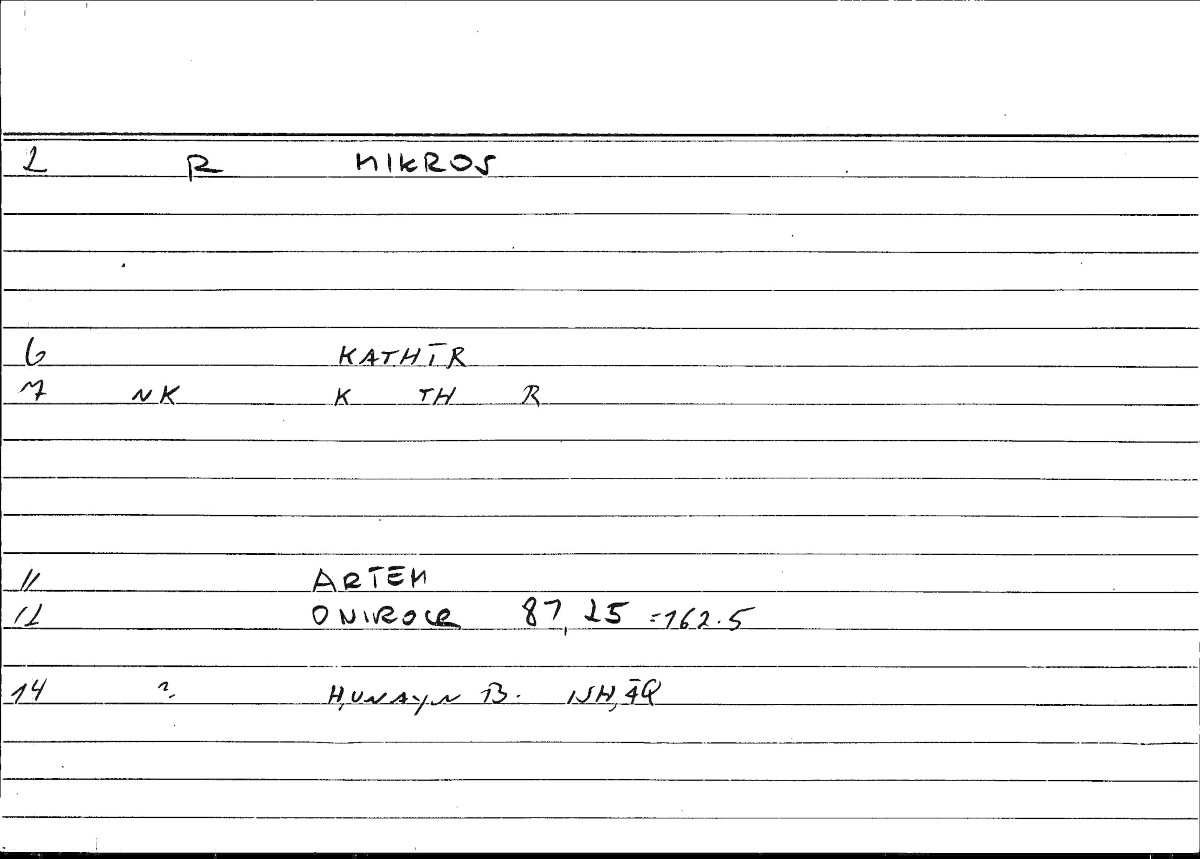 2 R MIKROS
6 KATHĪR
7 NK K TH R
11 ARTEM
12 ONIROCR 87,25 =162.5
14 ? ḤUNAYN B. ISḤĀQ